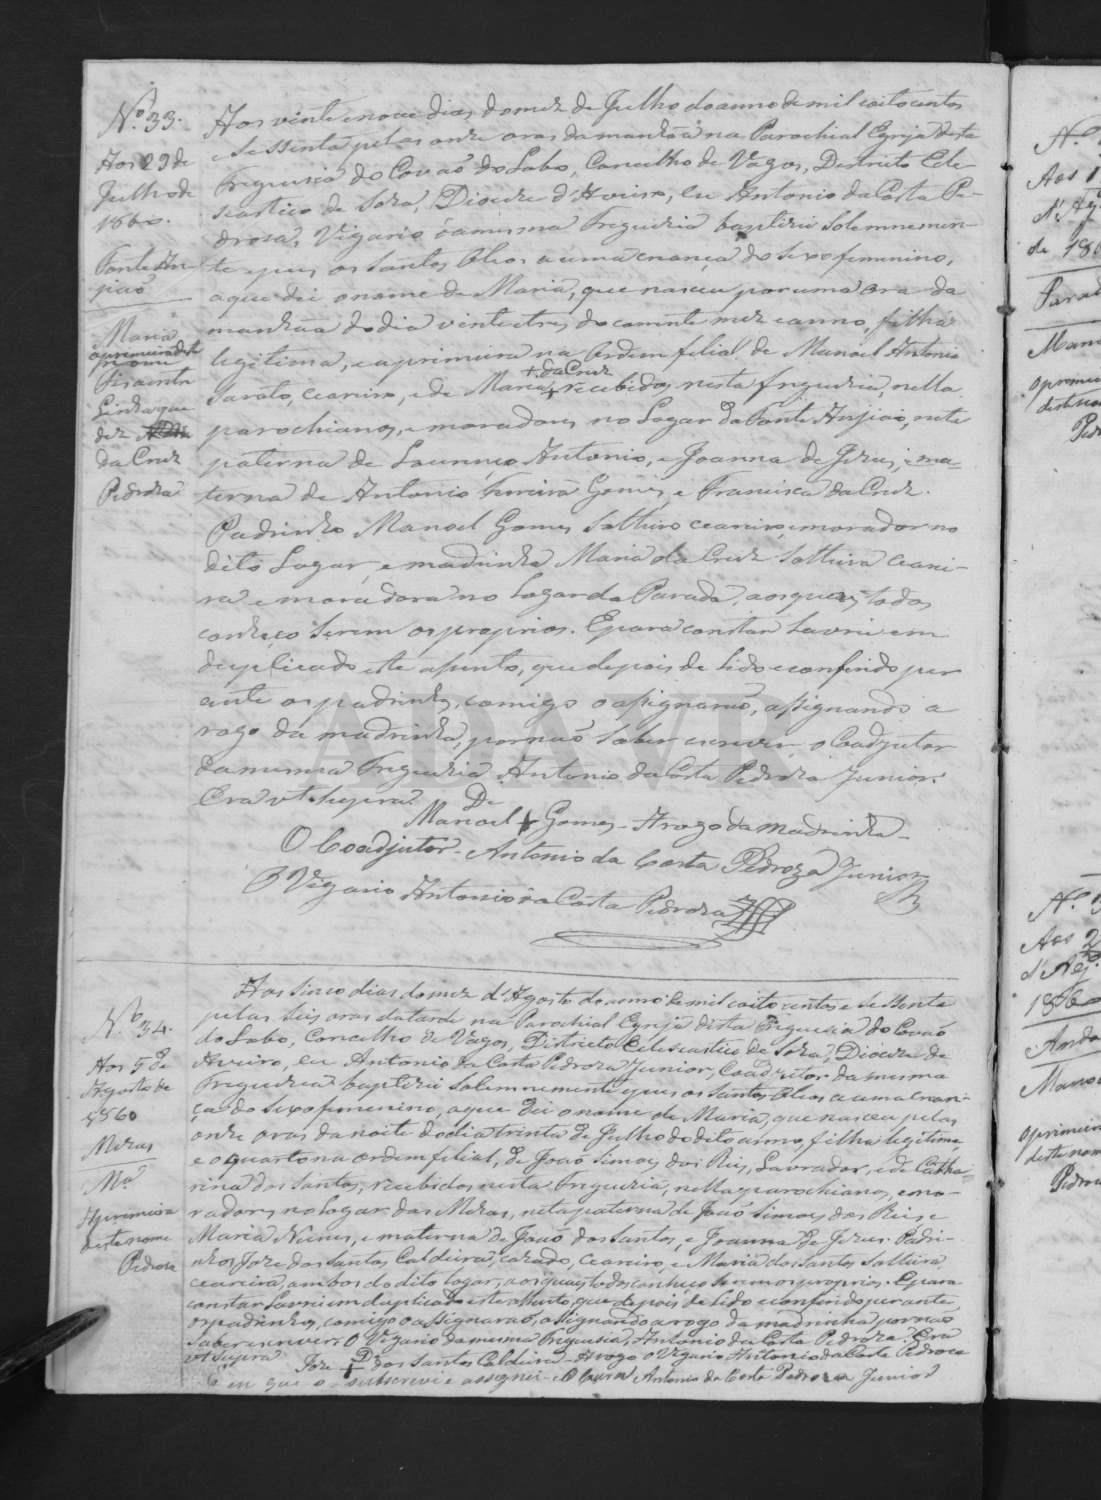 Nº 33.
Aos 29 de
Julho de
1860.
Fonte An-
jiaõ
Maria
aprimeira deste
nome
da Cruz
Pedroza
Aos vinte enove dias domez de Julho doanno de mil eoito centos
e Sessenta pelas onze oras da manhaã na Parochial Egreja desta
Freguesia do Covaõ do Lobo, Concelho de Vagos, Destricto Ecle-
seastico de Soza, Diocize d'Aveiro, eu Antonio da Costa Pe-
droza, Vigario damesma Freguezia baptizei Solemnemen-
te epus os Santos Oleos a uma criança do Sexo femenino,
aque dei onome de Maria, que nasceu por uma ora da
manhaã dodia vinte etres do corrente mez eanno, filha
legitima, e aprimeira na Ordem filial de Manoel Antonio
Sarato, ceareiro, ede Maria + da Cruz recebidos nesta freguezia, nella
parochianos, e moradores no Lugar da Fonte Anjiaõ, neta
paterna de Lourenço Antonio, e Joanna de Jezus, e ma-
terna de Antonio Ferreira Gomes, e Francisca da Cruz.
Padrinho Manoel Gomes Solteiro ceareiro, emorador no
dito Lugar, e madrinha Maria da Cruz Solteira Ceari-
ra e moradora no Lugar da Parada, aosquaes todos
conheço Serem os proprios. Epara constar Lavrei em
duplicado este aSsento, que depois de Lido econferido per
ante os padrinhos, comigo oaSsignaraõ, aSsignando a
rogo da madrinha, por naõ Saber escrever, o Coadjutor
damesma Freguezia Antonio da Costa Pedroza Junior.
Era vt Supra.
De
Manoel + Gomes - Arogo da madrinha -
O Coadjutor - Antonio da Costa Pedroza Junior
O Vigario Antonio da Costa Pedroza
Nº 34.
Aos 5 de
Agosto de
1860
Mezas
Mª
Aprimeira
deste nome
Pedroza
Aos Sinco dias domez d'Agosto do anno de mil eoito centos e Sessenta
pelas Seis oras da tarde na Parochial Egreja desta Freguezia do Covaõ
do Lobo, Concelho de Vagos, Districto Ecleseastico de Soza, Diocize de
Aveiro, eu Antonio da Costa Pedroza Junior, Coadjutor da mesma
Freguezia baptizei Solemnemente epus os Santos Oleos a uma crian-
ça do Sexo femenino, aque dei onome de Maria, que nasceu pelas
onze oras da noite dodia trinta de Julho do dito anno, filha legitima,
e oquarto na ordem filial, de Joaõ Simoes dos Reis, Lavrador, e de Catha-
rina dos Santos, recebidos nesta Freguezia, nella parochianos, e mo-
radores no Lugar das Mezas, neta paterna de Joaõ Simoes dos Reis, e
Maria Nunes, e materna de Joaõ dos Santos, e Joanna de Jezus. Padri-
nhos Joze dos Santos Caldeira, cazado, ceareiro, e Maria dos Santos Solteira,
ceareira, ambos do dito lugar, aosquaes todos conheço Serem os proprios. Epara
constar Lavrei em duplicado este aSsento, que depois de Lido econferido per ante
os padrinhos, comigo oaSsignaraõ, aSsignando a rogo da madrinha por naõ
Saber escrever O Vigario da mesma Freguezia, Antonio da Costa Pedroza. Era
vt Supra
Joze + De dos Santos Caldeira - Arogo o Vigario Antonio da Costa Pedroza
E eu que o subscrevi e assignei - O Cura Antonio da Costa Pedroza Junior
ADAVR